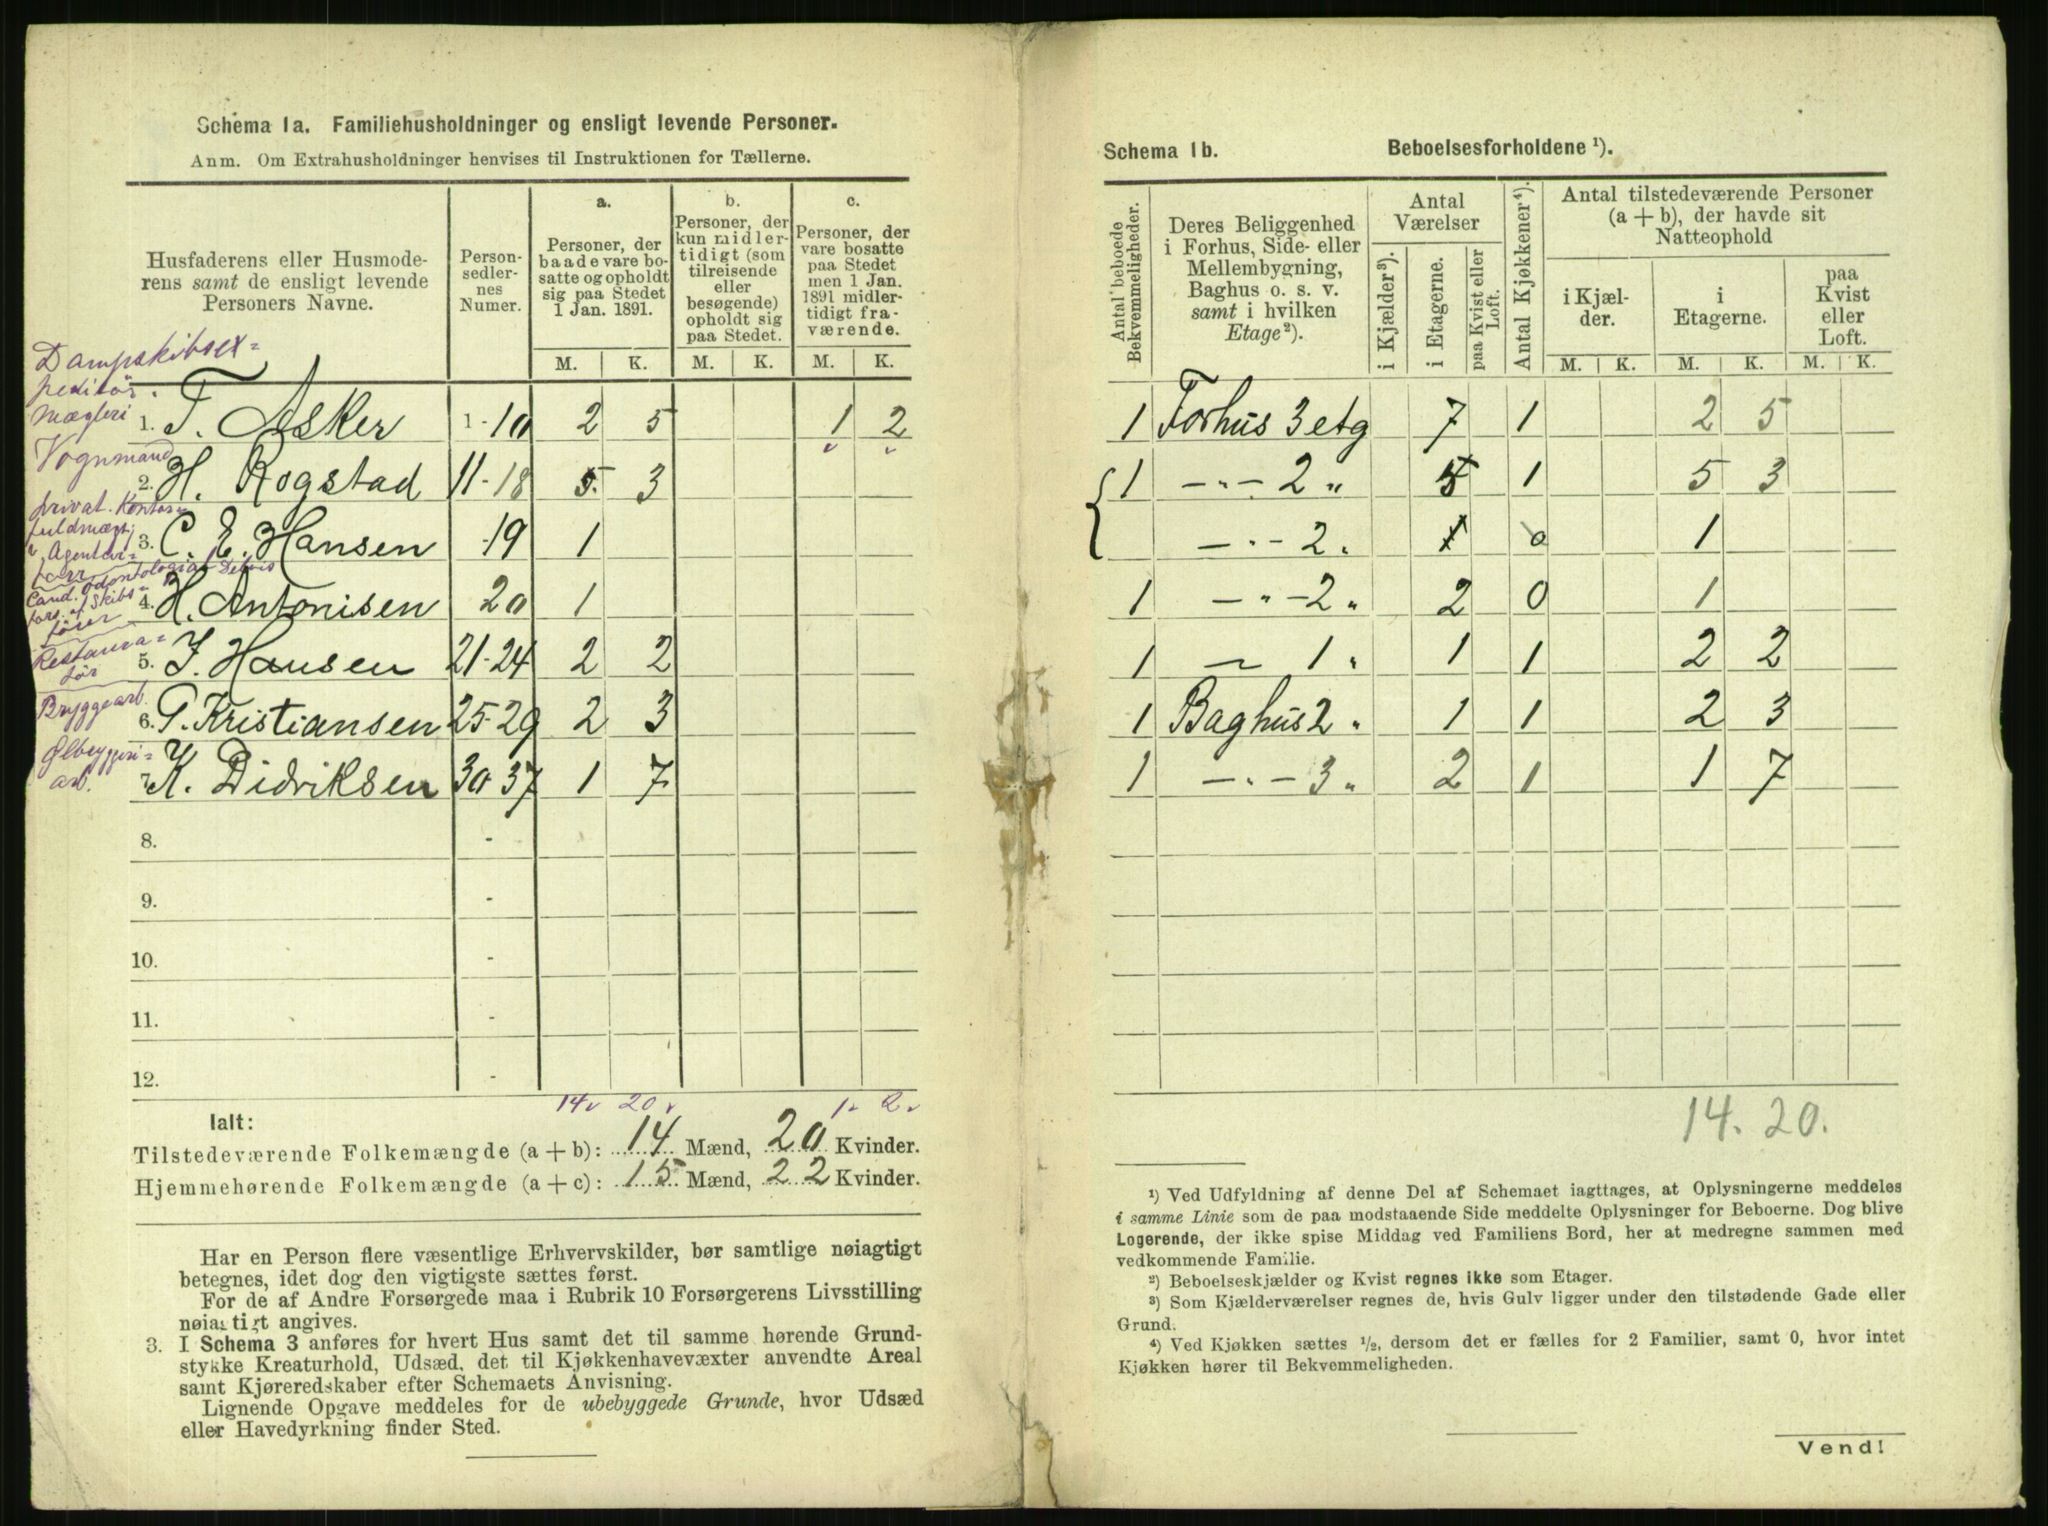 Schema 1a. Familiehusholdninger og ensligt levende Personer.
Anm. Om Extrahusholdninger henvises til Instruktionen for Tællerne.
Husfaderens eller Husmoderens samt de ensligt levende Personers Navne.
Person-sedlernes Numer.
a. Personer, der baade vare bosatte og opholdt sig paa Stedet 1 Jan. 1891.
b. Personer, der kun midlertidigt (som tilreisende eller besøgende) opholdt sig paa Stedet.
c. Personer, der vare bosatte paa Stedet men 1 Jan. 1891 midlertidigt fraværende.
M. K. M. K. M. K.
Dampskibsex=
peditør.
Mægleri
1. T. Asker 1-10 2 5 1 2
Vognmand
2. H. Rogstad 11-18 5 3
privat. Kontor=
fuldmægt.
3. C. E. Hansen -19 1
Cand. odontologia Delvis
fors. af Skibs=
fører
4. H. Antonisen 20 1
Restaura=
tør
5. J. Hansen 21-24 2 2
Bryggearb.
6. P. Kristiansen 25-29 2 3
Ølbryggeri=
arb.
7. K. Didriksen 30-37 1 7
8. -
9. -
10. -
11. -
12. -
14 20 1 2
Ialt:
Tilstedeværende Folkemængde (a + b): 14 Mænd, 20 Kvinder.
Hjemmehørende Folkemængde (a + c): 15 Mænd, 22 Kvinder.
Har en Person flere væsentlige Erhvervskilder, bør samtlige nøiagtigt
betegnes, idet dog den vigtigste sættes først.
For de af Andre Forsørgede maa i Rubrik 10 Forsørgerens Livsstilling
nøiagtigt angives.
3. I Schema 3 anføres for hvert Hus samt det til samme hørende Grund-
stykke Kreaturhold, Udsæd, det til Kjøkkenhavevæxter anvendte Areal
samt Kjøreredskaber efter Schemaets Anvisning.
Lignende Opgave meddeles for de ubebyggede Grunde, hvor Udsæd
eller Havedyrkning finder Sted.
Schema 1b. Beboelsesforholdene ¹).
Antal beboede Bekvemmeligheder.
Deres Beliggenhed i Forhus, Side- eller Mellembygning, Baghus o. s. v. samt i hvilken Etage²).
Antal Værelser
i Kjælder³).
i Etagerne.
paa Kvist eller Loft.
Antal Kjøkkener⁴).
Antal tilstedeværende Personer (a + b), der havde sit Natteophold
i Kjælder.
i Etagerne.
paa Kvist eller Loft.
M. K. M. K. M. K.
1 Forhus 3 etg 7 1 2 5
1 — " — 2 " 5 1 5 3
— " — 2 " 1 0 1
1 — " — 2 " 2 0 1
1 — 1 " 1 1 2 2
1 Baghus 2 " 1 1 2 3
1 — " — 3 " 2 1 1 7
14. 20.
¹) Ved Udfyldning af denne Del af Schemaet iagttages, at Oplysningerne meddeles
i samme Linie som de paa modstaaende Side meddelte Oplysninger for Beboerne. Dog blive
Logerende, der ikke spise Middag ved Familiens Bord, her at medregne sammen med
vedkommende Familie.
²) Beboelseskjælder og Kvist regnes ikke som Etager.
³) Som Kjælderværelser regnes de, hvis Gulv ligger under den tilstødende Gade eller
Grund.
⁴) Ved Kjøkken sættes ½, dersom det er fælles for 2 Familier, samt 0, hvor intet
Kjøkken hører til Bekvemmeligheden.
Vend!